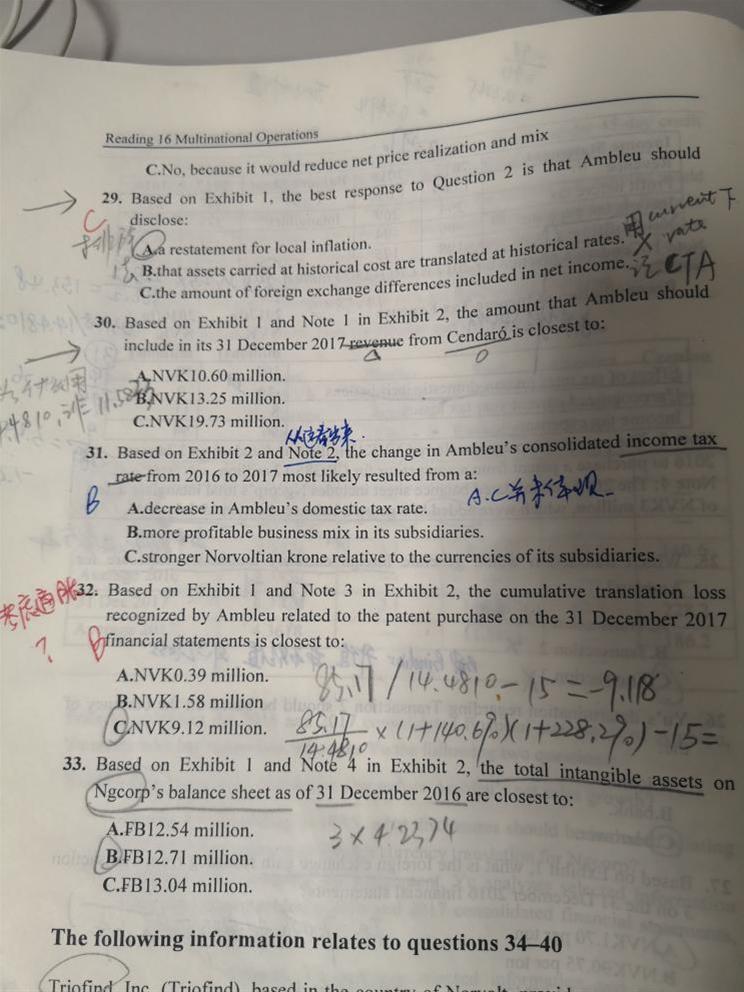 Reading 16 Multinational Operations
C.No, because it would reduce net price realization and mix
29. Based on Exhibit 1, the best response to Question 2 is that Ambleu should
disclose:
C
A.a restatement for local inflation.
用current下
B.that assets carried at historical cost are translated at historical rates. X rate
C.the amount of foreign exchange differences included in net income. CTA
30. Based on Exhibit 1 and Note 1 in Exhibit 2, the amount that Ambleu should
include in its 31 December 2017 revenue from Cendaró is closest to:
A.NVK10.60 million.
B.NVK13.25 million.
C.NVK19.73 million.
31. Based on Exhibit 2 and Note 2, the change in Ambleu's consolidated income tax
rate from 2016 to 2017 most likely resulted from a:
B
A.decrease in Ambleu's domestic tax rate.
A.C并未体现
B.more profitable business mix in its subsidiaries.
C.stronger Norvoltian krone relative to the currencies of its subsidiaries.
考虑通胀?
32. Based on Exhibit 1 and Note 3 in Exhibit 2, the cumulative translation loss
recognized by Ambleu related to the patent purchase on the 31 December 2017
B financial statements is closest to:
A.NVK0.39 million.
85.17/14.4810-15=-9.118
B.NVK1.58 million
C.NVK9.12 million.
85.17/14.4810 ×(1+140.6%)(1+228.2%)-15=
33. Based on Exhibit 1 and Note 4 in Exhibit 2, the total intangible assets on
Ngcorp's balance sheet as of 31 December 2016 are closest to:
A.FB12.54 million.
3×4.2374
B.FB12.71 million.
C.FB13.04 million.
The following information relates to questions 34–40
Triofind, Inc. (Triofind), based in the country of